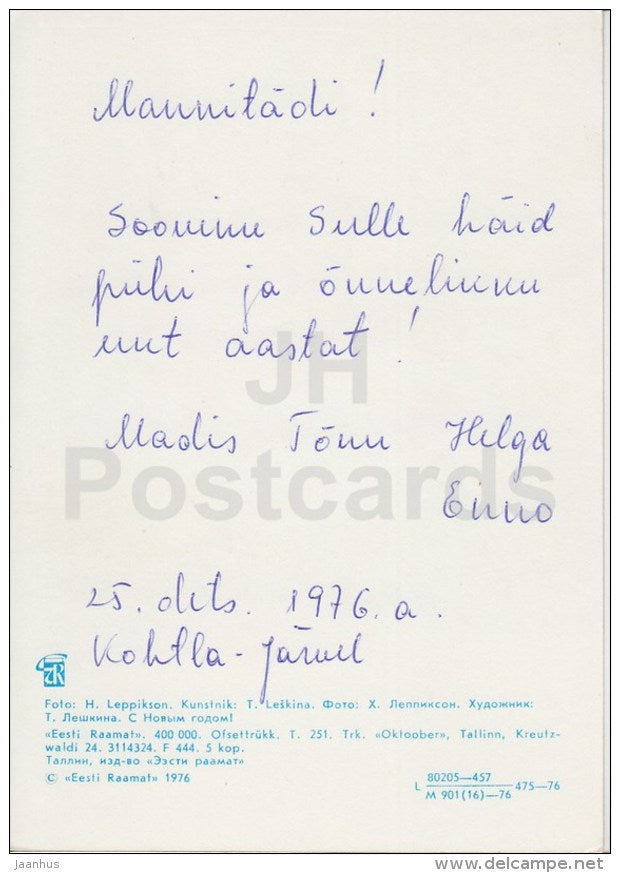 Mannitädi !
Soovime Sulle häid
pühi ja õnnelikku
uut aastat !
Madis Tõnu Helga
Enno
25. dets. 1976. a.
Kohtla-Järvel
JH
Postcards
Foto: H. Leppikson. Kunstnik: T. Leškina. Фото: Х. Леппиксон. Художник:
Т. Лешкина. С Новым годом!
«Eesti Raamat». 400 000. Ofsettrükk. T. 251. Trk. «Oktoober», Tallinn, Kreutz-
waldi 24. 3114324. F 444. 5 kop.
Таллин, изд-во «Ээсти раамат»
© «Eesti Raamat» 1976
L 80205—457 / M 901(16)—76 475—76
Jaanhus
www.delcampe.net